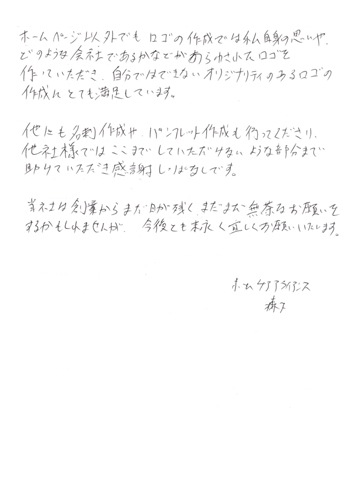 ホームページ以外でもロゴの作成では私自身の思いや、
どのような会社であるかなどがあらわされたロゴを
作っていただき、自分ではできないオリジナリティのあるロゴの
作成にとても満足しています。
他にも名刺作成や、パンフレット作成も行ってくださり、
他社様ではここまでしていただけないような部分まで
助けていただき感謝しっぱなしです。
当社は創業からまだ日が浅く、まだまだ無茶なお願いを
するかもしれませんが、今後とも末永く宜しくお願いいたします。
ホームケアアライアンス
森下